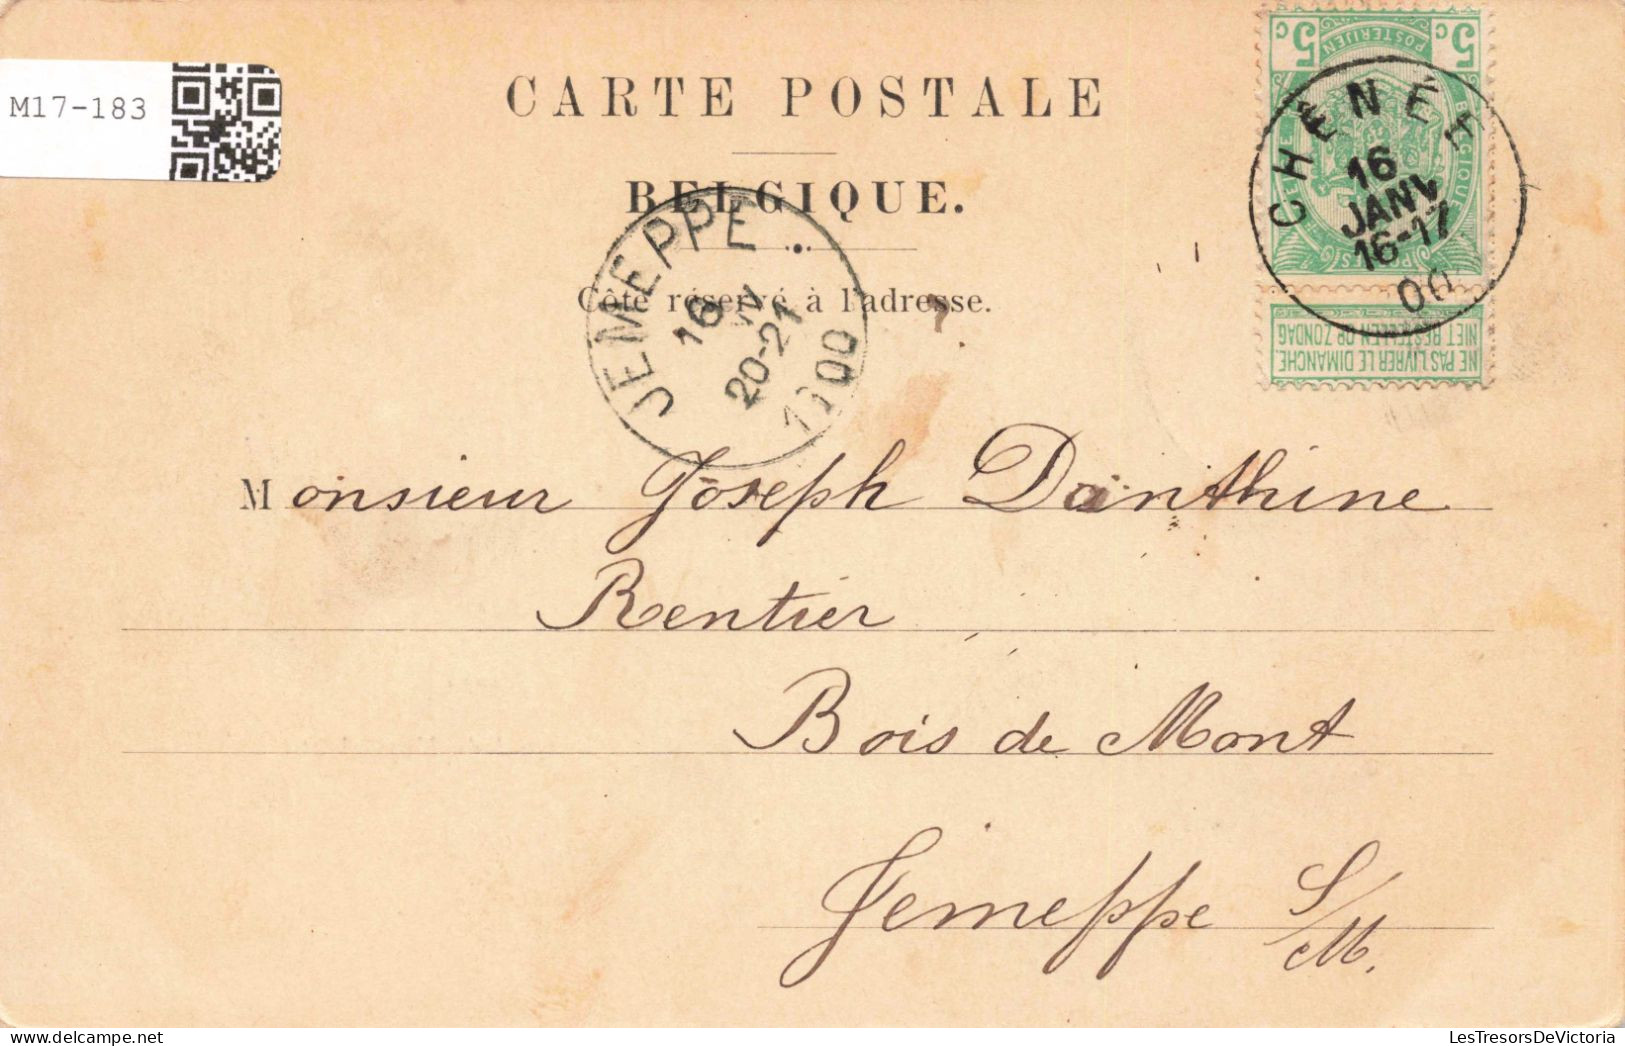 M17-183
CARTE POSTALE
BELGIQUE.
Côté réservé à l'adresse.
JEMEPPE
16
20-21
1900
5c 5c
POSTERIJEN
BELGIQUE
CHÊNÉE
16
JANV
16-17
00
NE PAS LIVRER LE DIMANCHE.
NIET BESTELLEN OP ZONDAG
Monsieur Joseph Danthine
Rentier
Bois de Mont
Jemeppe S/M.
LesTresorsDeVictoria